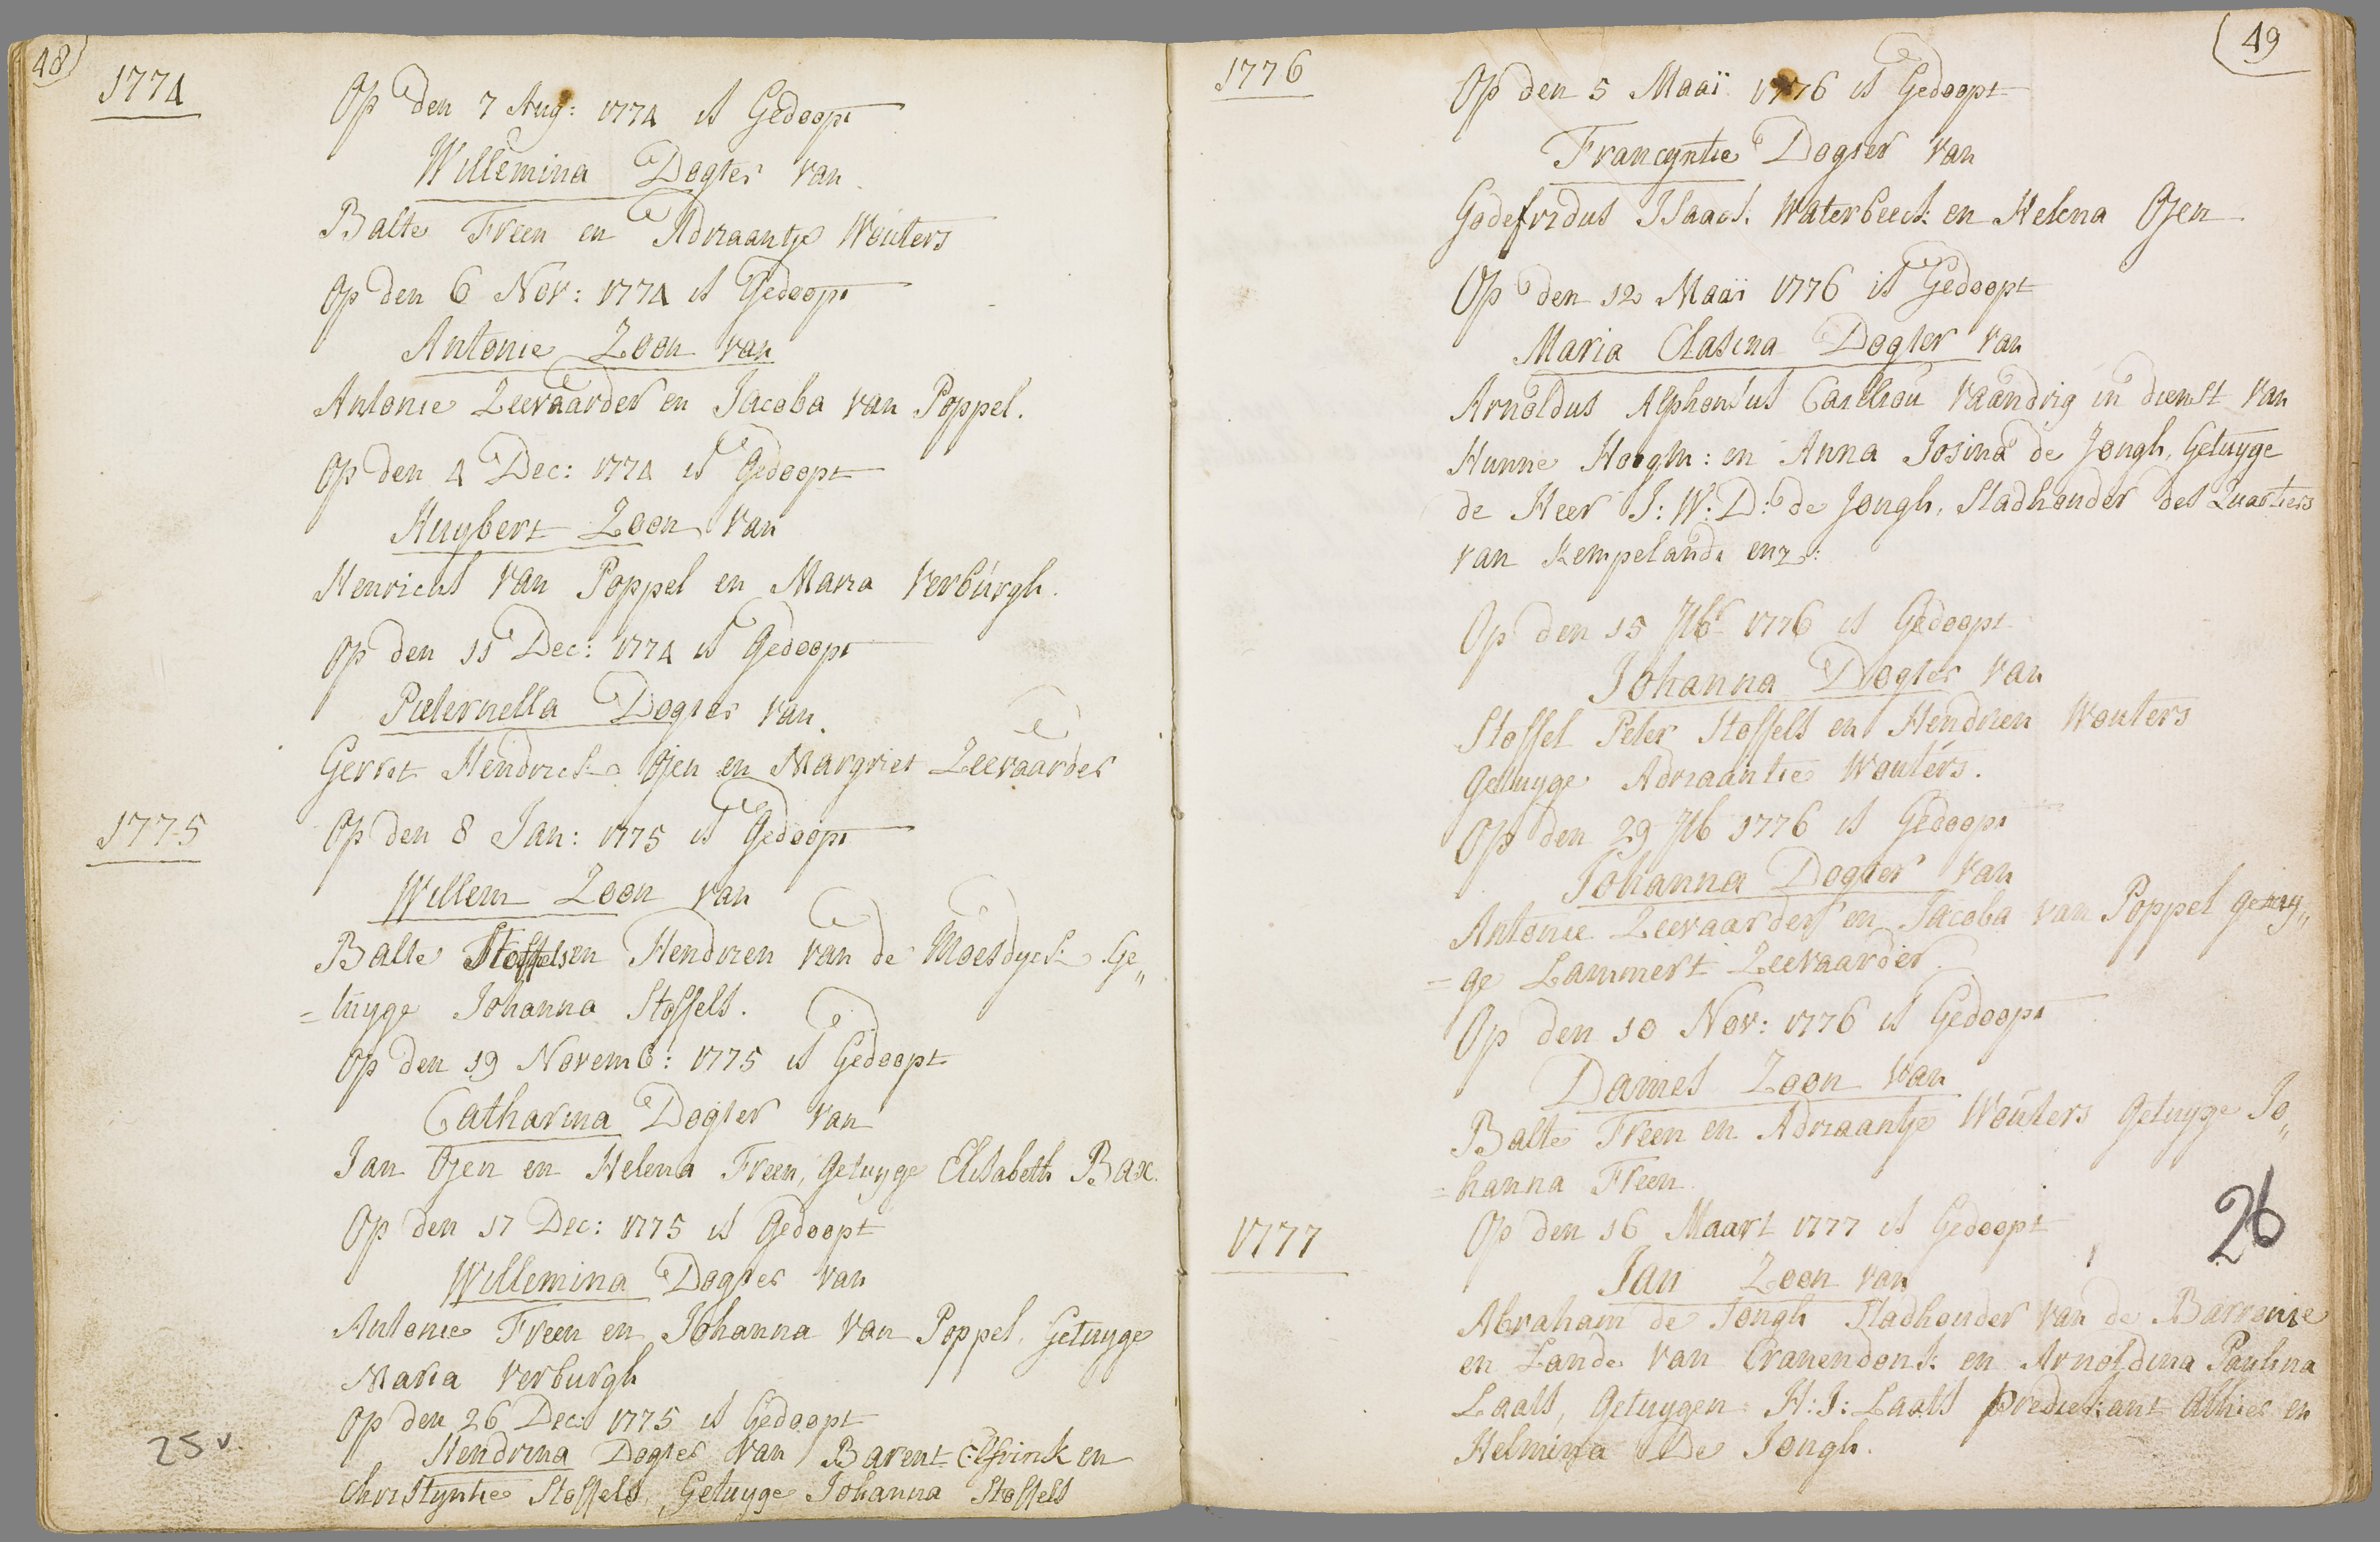 48
1774
Op den 7 Aug: 1774 is Gedoopt
Willemina Dogter van
Balte Freen en Adriaantje Wouters
Op den 6 Nov: 1774 is Gedoopt
Antonie Zoon van
Antonie Zeevaarder en Jacoba van Poppel.
Op den 4 Dec: 1774 is Gedoopt
Huybert Zoon van
Henricus van Poppel en Maria Verburgh.
Op den 11 Dec: 1774 is Gedoopt
Pieternella Dogter van
Gerrit Hendrick Ojen en Margriet Zeevaarder
1775
Op den 8 Jan: 1775 is Gedoopt
Willem Zoon van
Balte Stoffels en Hendrien van de Moesdyck Ge„
=tuyge Johanna Stoffels.
Op den 19 Novemb: 1775 is Gedoopt
Catharina Dogter van
Jan Ojen en Helena Freen, getuyge Elisabeth Bax.
Op den 17 Dec: 1775 is Gedoopt
Willemina Dogter van
Antonie Freen en Johanna van Poppel, Getuyge
Maria Verburgh
Op den 26 Dec: 1775 is Gedoopt
Hendrina Dogter van Barent Elfrink en
Christyntie Stoffels, Getuyge Johanna Stoffels
25 v
49
1776
Op den 5 Maaï 1776 is Gedoopt
Francyntie Dogter van
Godefridus Isaack Waterbeeck en Helena Ojen
Op den 12 Maaï 1776 is Gedoopt
Maria Clasina Dogter van
Arnoldus Alphonsus Cailliou Vaandrig in dienst van
Hunne Hoogm: en Anna Josina de Jongh, Getuyge
de Heer J: W: D: de Jongh, Stadhouder des Quartiers
van Kempelande enz:
Op den 15 7br 1776 is Gedoopt
Johanna Dogter van
Stoffel Peter Stoffels en Hendrien Wouters
Getuyge Adriaantie Wouters.
Op den 29 7b 1776 is Gedoopt
Johanna Dogter van
Antonie Zeevaarder en Jacoba van Poppel getuy„
=ge Lammert Zeevaarder.
Op den 10 Nov: 1776 is Gedoopt
Daniel Zoon van
Balte Freen en Adriaantje Wouters getuyge Jo„
=hanna Freen.
1777
Op den 16 Maart 1777 is Gedoopt
26
Jan Zoon van
Abraham de Jongh Stadhouder van de Barronie
en Lande van Cranendonk en Arnoldina Paulina
Laats, Getuygen H: J: Laats predickant alhier en
Helmina De Jongh.